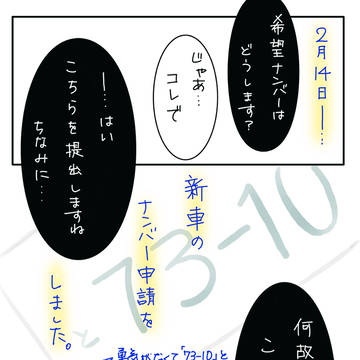 2月14日―…
希望ナンバーは
どうします？
じゃあ…
コレで
―…はい
こちらを提出しますね
ちなみに…
新車の
ナンバー申請を
しました。
73-10
と
何故
こ